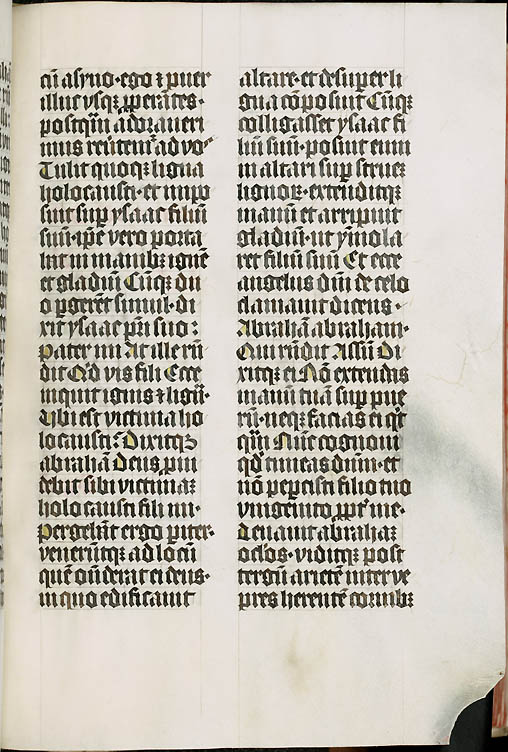 cū asyno · ego ⁊ puer
illuc vsqꝫ ꝓperātes ·
postqm̄ adorauerī
mus reūtem̄ ad vos
Tulit quoqꝫ ligna
holocausti · et impo
suit suꝑ ysaac filiū
suū · ipē vero porta
bat in manibꝫ ignē
et gladiū Cūqꝫ du
o ꝑgerēt simul · di
xit ysaac pr̄i suo :
pater mi At ille rn̄
dit Qͥd vis fili Ecce
inquit ignis ⁊ lignā ·
Vbi est victima ho
locausti? Dixitqꝫ
abrahā Deus ꝓui
debit sibi victimaꝫ
holocausti fili mi ·
pergebāt ergo ꝑiter ·
venerūtqꝫ ad locū
quē on̄derat ei deus ·
in quo edificauit
altare · et desuper li
gna cōposuit Cūqꝫ
colligasset ysaac fi
liū suū · posuit eum
in altari suꝑ strueꝫ
lignoꝝ · extenditqꝫ
manū et arripuit
gladiū · ut ymola
ret filiū suū Et ecce
angelus dn̄i de celo
clamauit dicens ·
Abrahā abraham ·
Qui rn̄dit Assū Di
xitqꝫ ei Nō extendas
manū tuā suꝑ pue
rū · neqꝫ facias ei qͥc
qm̄ Nūc cognoui
qd̄ timeas dn̄m · et
nō pepcisti filio tuo
vnigenito ꝓpt̄ me ·
Leuauit abrahaꝫ
oclos · viditqꝫ post
tergū arietē inter ve
pres herentē cornibꝫ